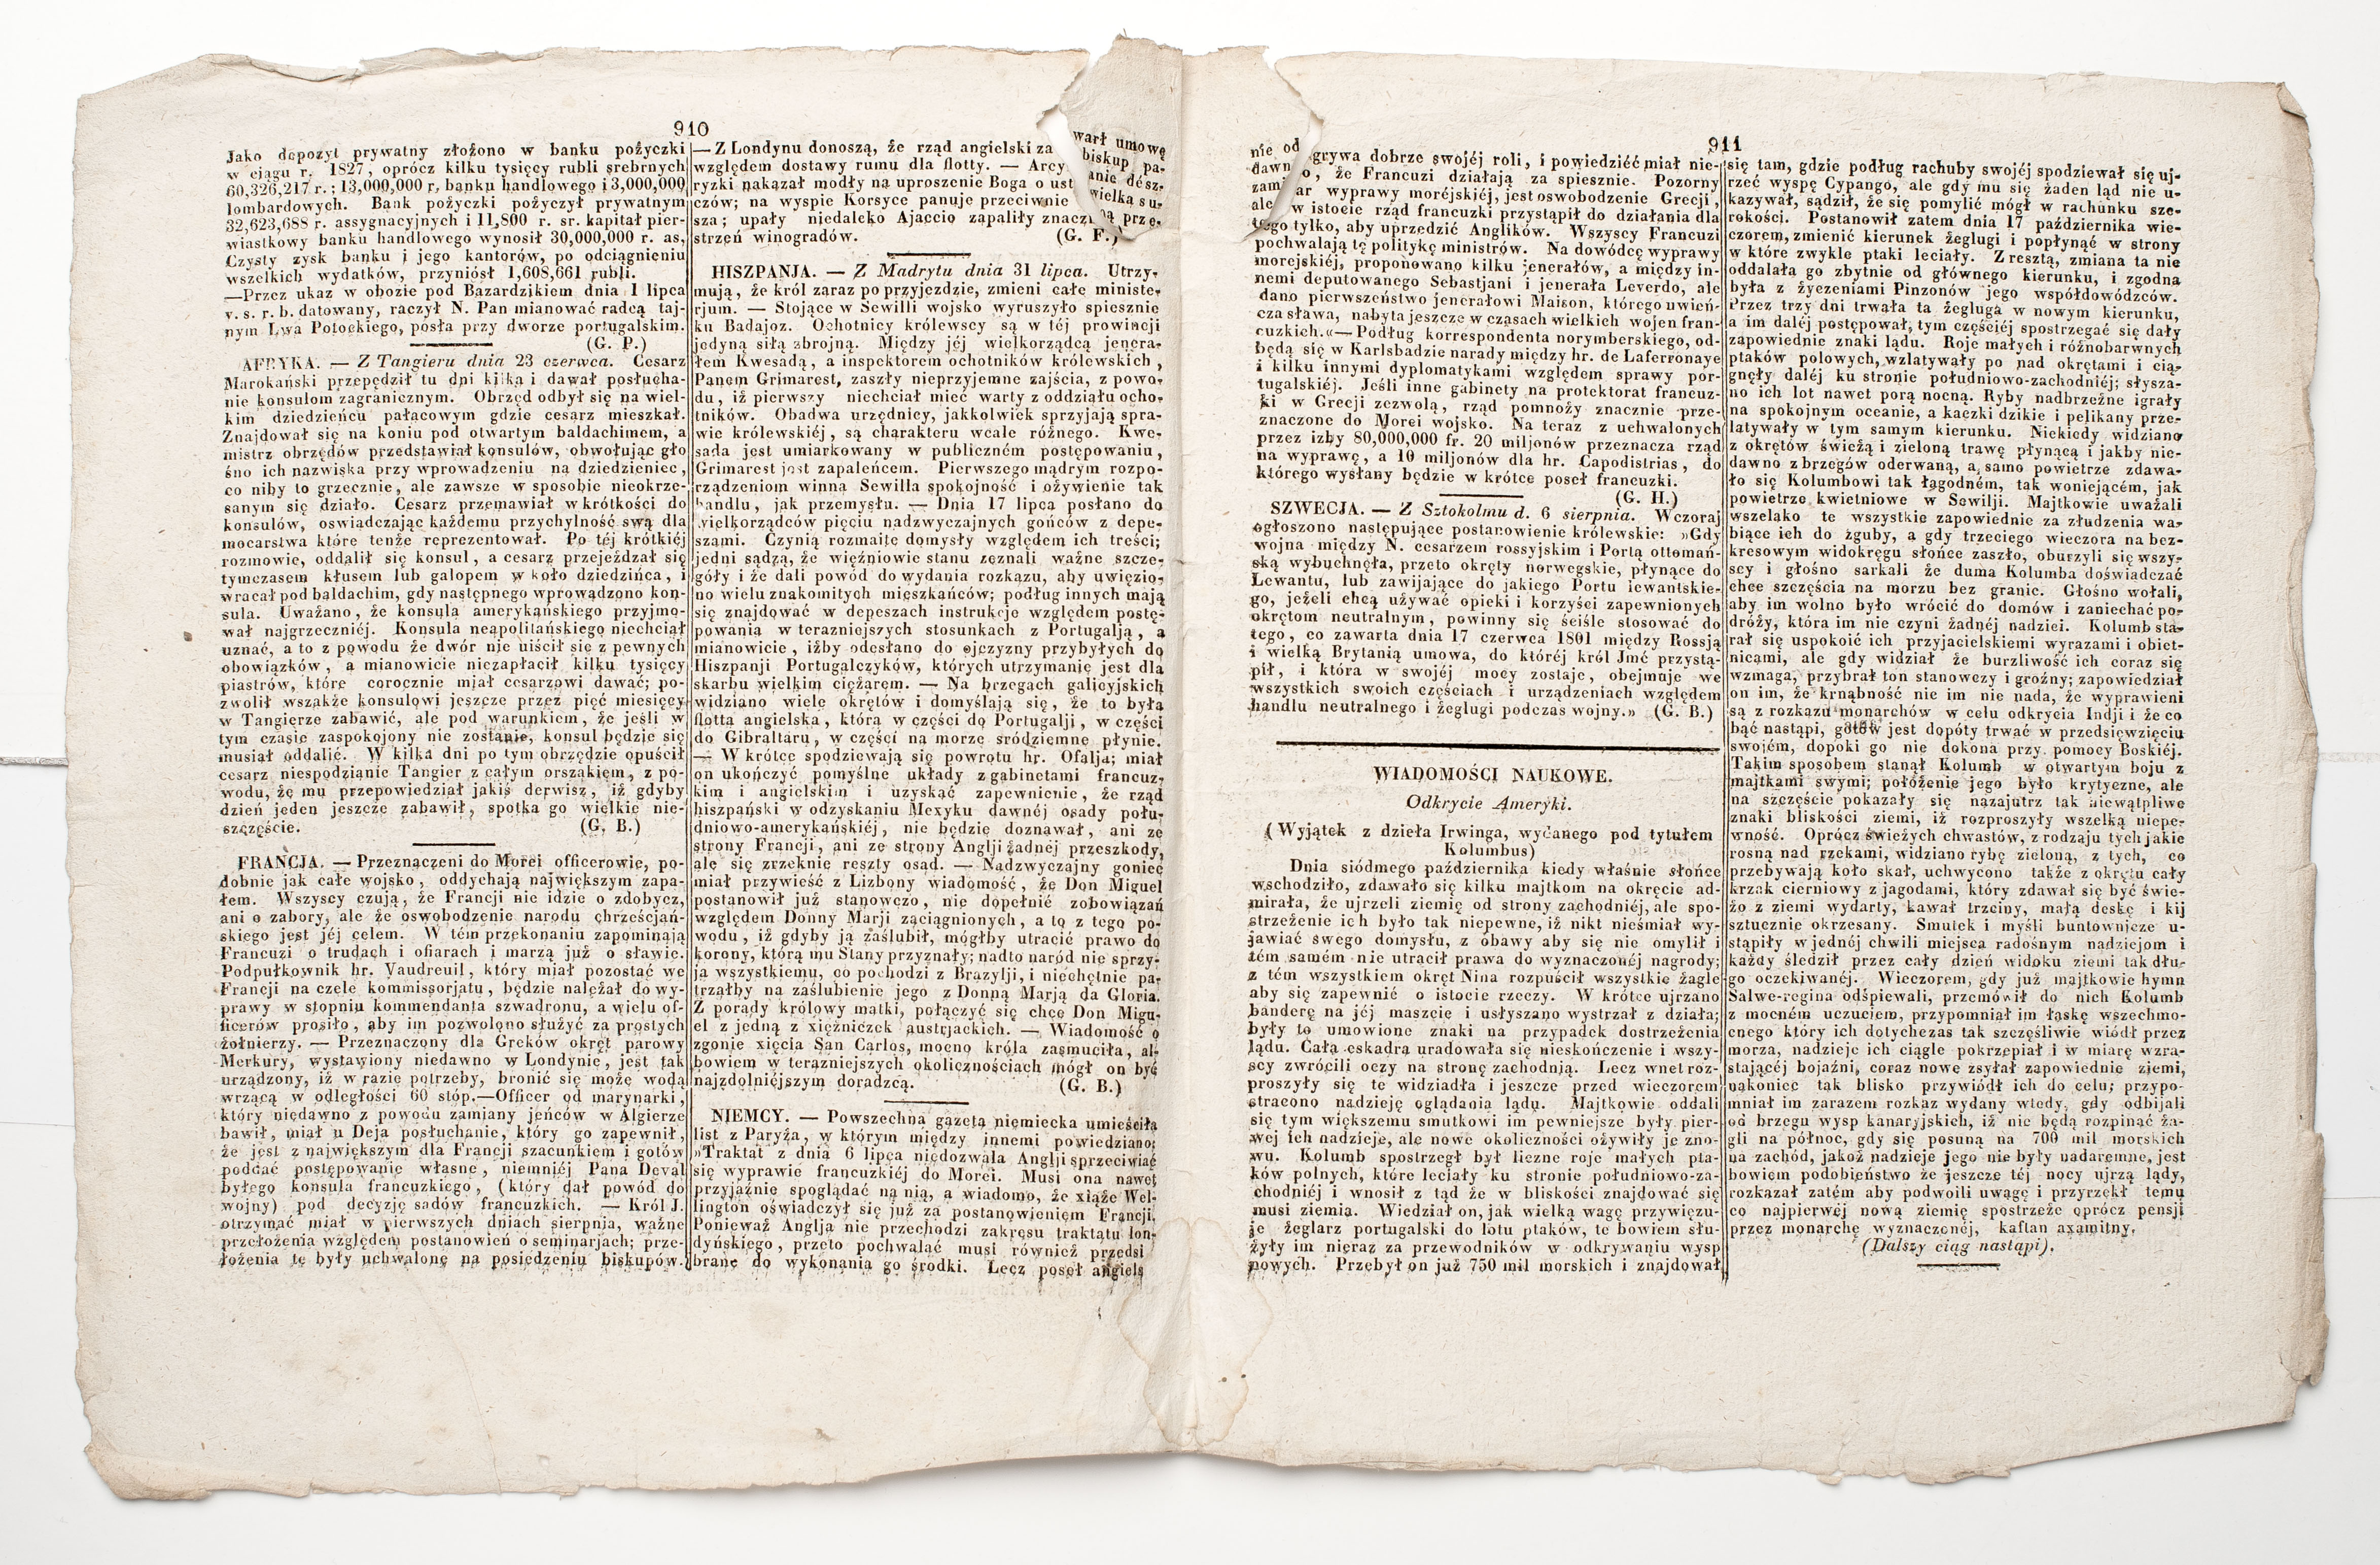 910
Jako depozyt prywatny złożono w banku pożyczki
w ciągu r. 1827, oprócz kilku tysięcy rubli srebrnych
60,326,217 r.; 13,000,000 r, banku handlowego i 3,000,000
lombardowych. Bank pożyczki pożyczył prywatnym
32,623,688 r. assygnacyjnych i 11,800 r. sr. kapitał pier-
wiastkowy banku handlowego wynosił 30,000,000 r. as,
Czysty zysk banku i jego kantorów, po odciągnieniu
wszelkich wydatków, przyniósł 1,608,661 rubli.
—Przez ukaz w obozie pod Bazardzikiem dnia 1 lipca
v. s. r. b. datowany, raczył N. Pan mianować radcą taj-
nym Lwa Potockiego, posła przy dworze portugalskim.
(G. P.)
AFRYKA. — Z Tangieru dnia 23 czerwca. Cesarz
Marokański przepędził tu dni kilka i dawał posłucha-
nie konsulom zagranicznym. Obrzęd odbył się na wiel-
kim dziedzieńcu pałacowym gdzie cesarz mieszkał.
Znajdował się na koniu pod otwartym baldachimem, a
mistrz obrzędów przedstawiał konsulów, obwołując gło
śno ich nazwiska przy wprowadzeniu na dziedzieniec,
co niby to grzecznie, ale zawsze w sposobie nieokrze-
sanym się działo. Cesarz przemawiał w krótkości do
konsulów, oswiadczając każdemu przychylność swą dla
mocarstwa które tenże reprezentował. Po téj krótkiéj
rozmowie, oddalił się konsul, a cesarz przejeżdzał się
tymczasem kłusem lub galopem w koło dziedzińca, i
wracał pod baldachim, gdy następnego wprowadzono kon-
sula. Uważano, że konsula amerykańskiego przyjmo-
wał najgrzeczniéj. Konsula neapolitańskiego niechciał
uznać, a to z powodu że dwór nie uiścił się z pewnych
obowiązków, a mianowicie niezapłacił kilku tysięcy
piastrów, które corocznie miał cesarzowi dawać; po-
zwolił wszakże konsulowi jeszcze przez pięć miesięcy
w Tangierze zabawić, ale pod warunkiem, że jeśli w
tym czasie zaspokojony nie zostanie, konsul będzie się
musiał oddalić. W kilka dni po tym obrzędzie opuścił
cesarz niespodzianie Tangier z całym orszakiem, z po-
wodu, że mu przepowiedział jakiś derwisz, iż gdyby
dzień jeden jeszcze zabawił, spotka go wielkie nie-
szczęście. (G. B.)
FRANCJA. — Przeznaczeni do Morei officerowie, po-
dobnie jak całe wojsko, oddychają największym zapa-
łem. Wszyscy czują, że Francji nie idzie o zdobycz,
ani o zabory, ale że oswobodzenie narodu chrześcjań-
skiego jest jéj celem. W tém przekonaniu zapominają
Francuzi o trudach i ofiarach i marzą już o sławie.
Podpułkownik hr. Vaudreuil, który miał pozostać we
Francji na czele kommissorjatu, będzie należał do wy-
prawy w stopniu kommendanta szwadronu, a wielu of-
ficerów prosiło, aby im pozwolono służyć za prostych
żołnierzy. — Przeznaczony dla Greków okręt parowy
Merkury, wystawiony niedawno w Londynie, jest tak
urządzony, iż w razie potrzeby, bronić się może wodą
wrzącą w odległości 60 stóp.—Officer od marynarki,
który niedawno z powodu zamiany jeńców w Algierze
bawił, miał u Deja posłuchanie, który go zapewnił,
że jest z największym dla Francji szacunkiem i gotów
poddać postępowanie własne, niemniéj Pana Deval
byłego konsula francuzkiego, (który dał powód do
wojny) pod decyzję sadów francuzkich. — Król J.
otrzymać miał w pierwszych dniach sierpnia, ważne
przełożenia względem postanowień o seminarjach; prze-
łożenia te były uchwalone na posiedzeniu biskupów.
— Z Londynu donoszą, że rząd angielski zawarł umowę
względem dostawy rumu dla flotty. — Arcybiskup pa-
ryzki nakazał modły na uproszenie Boga o ustanie dész-
czów; na wyspie Korsyce panuje przeciwnie wielka su-
sza; upały niedaleko Ajaccio zapaliły znaczną prze-
strzeń winogradów. (G. F.)
HISZPANJA. — Z Madrytu dnia 31 lipca. Utrzy-
mują, że król zaraz po przyjezdzie, zmieni całe ministe-
rjum. — Stojące w Sewilli wojsko wyruszyło spiesznie
ku Badajoz. Ochotnicy królewscy są w téj prowincji
jedyną siłą zbrojną. Między jéj wielkorządcą jenera-
łem Kwesadą, a inspektorem ochotników królewskich,
Panem Grimarest, zaszły nieprzyjemne zajścia, z powo-
du, iż pierwszy niechciał mieć warty z oddziału ocho-
tników. Obadwa urzędnicy, jakkolwiek sprzyjają spra-
wie królewskiéj, są charakteru wcale różnego. Kwe-
sada jest umiarkowany w publiczném postępowaniu,
Grimarest jest zapaleńcem. Pierwszego mądrym rozpo-
rządzeniom winna Sewilla spokojność i ożywienie tak
handlu, jak przemysłu. — Dnia 17 lipca posłano do
wielkorządców pięciu nadzwyczajnych gońców z depe-
szami. Czynią rozmaite domysły względem ich treści;
jedni sądzą, że więźniowie stanu zeznali ważne szcze-
góły i że dali powód do wydania rozkazu, aby uwięzio-
no wielu znakomitych mieszkańców; podług innych mają
się znajdować w depeszach instrukcje względem postę-
powania w terazniejszych stosunkach z Portugalją, a
mianowicie, iżby odesłano do ojczyzny przybyłych do
Hiszpanji Portugalczyków, których utrzymanie jest dla
skarbu wielkim ciężarem. — Na brzegach galicyjskich
widziano wiele okrętów i domyślają się, że to była
flotta angielska, która w części do Portugalji, w części
do Gibraltaru, w części na morze sródziemne płynie.
— W krótce spodziewają się powrotu hr. Ofalja; miał
on ukończyć pomyślne układy z gabinetami francuz-
kim i angielskim i uzyskać zapewnienie, że rząd
hiszpański w odzyskaniu Mexyku dawnéj osady połu-
dniowo-amerykańskiéj, nie będzie doznawał, ani ze
strony Francji, ani ze strony Anglji żadnéj przeszkody,
ale się zrzeknie reszty osad. — Nadzwyczajny goniec
miał przywieść z Lizbony wiadomość, że Don Miguel
postanowił już stanowczo, nie dopełnić zobowiązań
względem Donny Marji zaciągnionych, a to z tego po-
wodu, iż gdyby ją zaślubił, mógłby utracić prawo do
korony, którą mu Stany przyznały; nadto naród nie sprzy-
ja wszystkiemu, co pochodzi z Brazylji, i niechętnie pa-
trzałby na zaślubienie jego z Donną Marją da Gloria.
Z porady królowy matki, połączyć się chce Don Migu-
el z jedną z xiężniczek austrjackich. — Wiadomość o
zgonie xięcia San Carlos, mocno króla zasmuciła, al-
bowiem w terazniejszych okolicznościach mógł on być
najzdolniéjszym doradzcą. (G. B.)
NIEMCY. — Powszechna gazeta niemiecka umieściła
list z Paryża, w którym między innemi powiedziano:
»Traktat z dnia 6 lipca niedozwala Anglji sprzeciwiać
się wyprawie francuzkiéj do Morei. Musi ona nawet
przyjaźnie spoglądać na nią, a wiadomo, że xiąże Wel-
lington oświadczył się już za postanowieniem Francji.
Ponieważ Anglja nie przechodzi zakresu traktatu lon-
dyńskiego, przeto pochwalać musi również przedsi
brane do wykonania go środki. Lecz poseł angiels
911
nie odgrywa dobrze swojéj roli, i powiedziéć miał nie-
dawno, że Francuzi działają za spiesznie. Pozorny
zamiar wyprawy moréjskiéj, jest oswobodzenie Grecji,
ale w istocie rząd francuzki przystąpił do działania dla
tego tylko, aby uprzedzić Anglików. Wszyscy Francuzi
pochwalają tę politykę ministrów. Na dowódcę wyprawy
morejskiéj, proponowano kilku jenerałów, a między in-
nemi deputowanego Sebastjani i jenerała Leverdo, ale
dano pierwszeństwo jenerałowi Maison, którego uwień-
cza sława, nabyta jeszcze w czasach wielkich wojen fran-
cuzkich.«— Podług korrespondenta norymberskiego, od-
będą się w Karlsbadzie narady między hr. de Laferronaye
i kilku innymi dyplomatykami względem sprawy por-
tugalskiéj. Jeśli inne gabinety na protektorat francuz-
ki w Grecji zezwolą, rząd pomnoży znacznie prze-
znaczone do Morei wojsko. Na teraz z uchwalonych
przez izby 80,000,000 fr. 20 miljonów przeznacza rząd
na wyprawę, a 10 miljonów dla hr. Capodistrias, do
którego wysłany będzie w krótce poseł francuzki.
(G. H.)
SZWECJA. — Z Sztokolmu d. 6 sierpnia. Wczoraj
ogłoszono następujące postanowienie królewskie: »Gdy
wojna między N. cesarzem rossyjskim i Portą ottomań-
ską wybuchnęła, przeto okręty norwegskie, płynące do
Lewantu, lub zawijające do jakiego Portu lewantskie-
go, jeżeli chcą używać opieki i korzyści zapewnionych
okrętom neutralnym, powinny się ściśle stosować do
tego, co zawarta dnia 17 czerwca 1801 między Rossją
i wielką Brytanią umowa, do któréj król Jmć przystą-
pił, i która w swojéj mocy zostaje, obejmuje we
wszystkich swoich częściach i urządzeniach względem
handlu neutralnego i żeglugi podczas wojny.» (G. B.)
WIADOMOŚCI NAUKOWE.
Odkrycie Ameryki.
(Wyjątek z dzieła Irwinga, wydanego pod tytułem
Kolumbus)
Dnia siódmego października kiedy właśnie słońce
wschodziło, zdawało się kilku majtkom na okręcie ad-
mirała, że ujrzeli ziemię od strony zachodniéj, ale spo-
strzeżenie ich było tak niepewne, iż nikt nieśmiał wy-
jawiać swego domysłu, z obawy aby się nie omylił i
tém samém nie utracił prawa do wyznaczonéj nagrody;
z tém wszystkiem okręt Nina rozpuścił wszystkie żagle
aby się zapewnić o istocie rzeczy. W krótce ujrzano
banderę na jéj maszcie i usłyszano wystrzał z działa;
były to umowione znaki na przypadek dostrzeżenia
lądu. Cała eskadra uradowała się nieskończenie i wszy-
scy zwrócili oczy na stronę zachodnią. Lecz wnet roz-
proszyły się te widziadła i jeszcze przed wieczorem
stracono nadzieję oglądania lądu. Majtkowie oddali
się tym większemu smutkowi im pewniejsze były pier-
wéj ich nadzieje, ale nowe okoliczności ożywiły je zno-
wu. Kolumb spostrzegł był liczne roje małych pta-
ków polnych, które leciały ku stronie południowo-za-
chodniéj i wnosił z tąd że w bliskości znajdować się
musi ziemia. Wiedział on, jak wielką wagę przywiązu-
je żeglarz portugalski do lotu ptaków, te bowiem słu-
żyły im nieraz za przewodników w odkrywaniu wysp
nowych. Przebył on już 750 mil morskich i znajdował
się tam, gdzie podług rachuby swojéj spodziewał się uj-
rzeć wyspę Cypango, ale gdy mu się żaden ląd nie u-
kazywał, sądził, że się pomylić mógł w rachunku sze-
rokości. Postanowił zatem dnia 17 października wie-
czorem, zmienić kierunek żeglugi i popłynąć w strony
w które zwykle ptaki leciały. Z resztą, zmiana ta nie
oddalała go zbytnie od głównego kierunku, i zgodna
była z życzeniami Pinzonów jego współdowódzców.
Przez trzy dni trwała ta żegluga w nowym kierunku,
a im daléj postępował, tym częściéj spostrzegać się dały
zapowiednie znaki lądu. Roje małych i różnobarwnych
ptaków polowych, wzlatywały po nad okrętami i cią-
gnęły daléj ku stronie południowo-zachodniéj; słysza-
no ich lot nawet porą nocną. Ryby nadbrzeżne igrały
na spokojnym oceanie, a kaczki dzikie i pelikany prze-
latywały w tym samym kierunku. Niekiedy widziano
z okrętów świeżą i zieloną trawę płynącą i jakby nie-
dawno z brzegów oderwaną, a samo powietrze zdawa-
ło się Kolumbowi tak łagodném, tak woniejącém, jak
powietrze kwietniowe w Sewilji. Majtkowie uważali
wszelako te wszystkie zapowiednie za złudzenia wa-
biące ich do zguby, a gdy trzeciego wieczora na bez-
kresowym widokręgu słońce zaszło, oburzyli się wszy-
scy i głośno sarkali że duma Kolumba doświadczać
chce szczęścia na morzu bez granic. Głośno wołali,
aby im wolno było wrócić do domów i zaniechać po-
dróży, która im nie czyni żadnéj nadziei. Kolumb sta-
rał się uspokoić ich przyjacielskiemi wyrazami i obiet-
nicami, ale gdy widział że burzliwość ich coraz się
wzmaga, przybrał ton stanowczy i groźny; zapowiedział
on im, że krnąbność nie im nie nada, że wyprawieni
są z rozkazu monarchów w celu odkrycia Indji i że co
bąć nastąpi, gotów jest dopóty trwać w przedsięwzięciu
swojém, dopoki go nie dokona przy pomocy Boskiéj.
Takim sposobem stanął Kolumb w otwartym boju z
majtkami swymi; położenie jego było krytyczne, ale
na szczęście pokazały się nazajutrz tak niewątpliwe
znaki bliskości ziemi, iż rozproszyły wszelką niepe-
wność. Oprócz świeżych chwastów, z rodzaju tych jakie
rosną nad rzekami, widziano rybę zieloną, z tych, co
przebywają koło skał, uchwycono także z okrętu cały
krzak cierniowy z jagodami, który zdawał się być świe-
żo z ziemi wydarty, kawał trzciny, małą deskę i kij
sztucznie okrzesany. Smutek i myśli buntownicze u-
stąpiły w jednéj chwili miejsca radośnym nadziejom i
każdy śledził przez cały dzień widoku ziemi tak dłu-
go oczekiwanéj. Wieczorem, gdy już majtkowie hymn
Salwe-regina odśpiewali, przemówił do nich Kolumb
z mocném uczuciem, przypomniał im łąskę wszechmo-
cnego który ich dotychczas tak szczęśliwie wiódł przez
morza, nadzieje ich ciągle pokrzepiał i w miarę wzra-
stającéj bojaźni, coraz nowe zsyłał zapowiednie ziemi,
nakoniec tak blisko przywiódł ich do celu; przypo-
mniał im zarazem rozkaz wydany wtedy, gdy odbijali
od brzegu wysp kanaryjskich, iż nie będą rozpinać ża-
gli na północ, gdy się posuną na 700 mil morskich
na zachód, jakoż nadzieje jego nie były nadaremne, jest
bowiem podobieństwo że jeszcze téj nocy ujrzą lądy,
rozkazał zatém aby podwoili uwagę i przyrzekł temu
co najpierwéj nową ziemię spostrzeże oprócz pensji
przez monarchę wyznaczonéj, kaftan axamitny.
(Dalszy ciąg nastąpi).